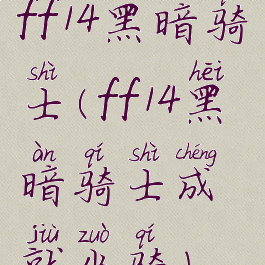 ff14黑暗骑
shì hēi
士(ff14黑
àn qí shì chéng
暗骑士成
jiù zuò qí
就坐骑)